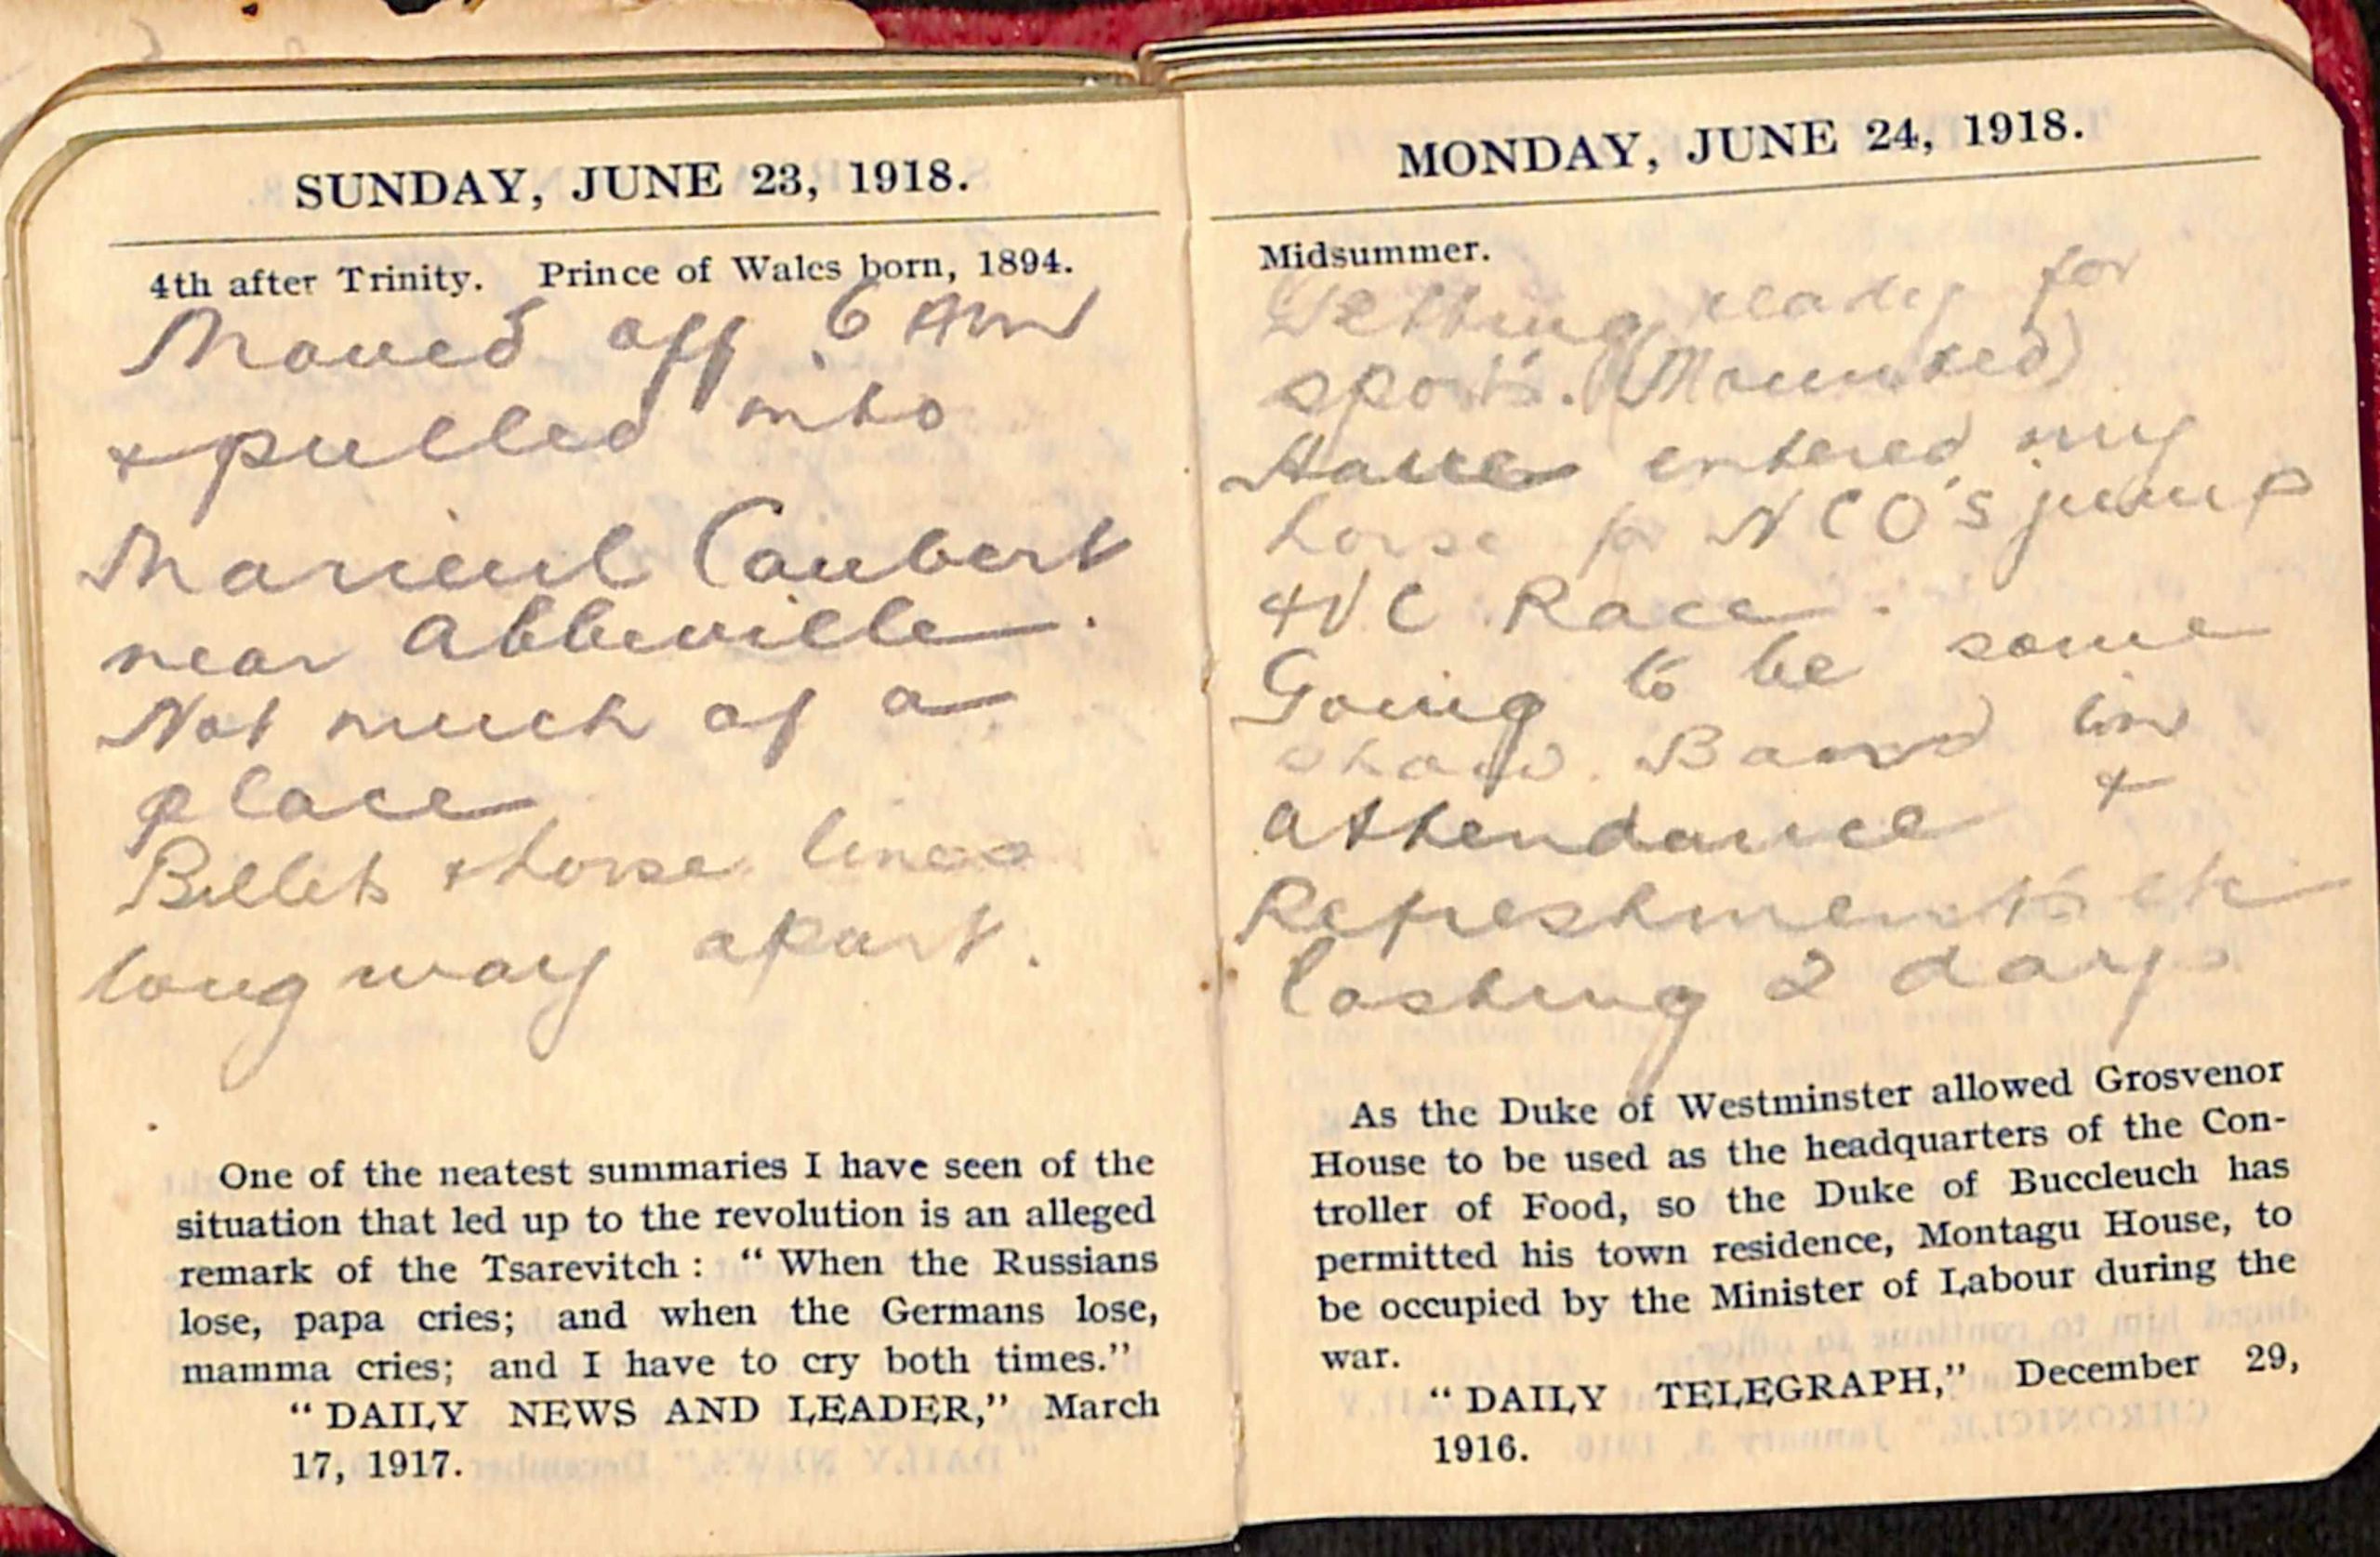 SUNDAY, JUNE 23, 1918.
4th after Trinity. Prince of Wales born, 1894.
Moved off 6 AM
& pulled into
Marieul Caubert
near Abbeville.
Not much of a
place
Billets & horse lines
long way apart.
One of the neatest summaries I have seen of the
situation that led up to the revolution is an alleged
remark of the Tsarevitch : “ When the Russians
lose, papa cries; and when the Germans lose,
mamma cries; and I have to cry both times.”
“ DAILY NEWS AND LEADER,” March
17, 1917.
MONDAY, JUNE 24, 1918.
Midsummer.
Getting ready for
sports. (Mounted)
Have entered my
horse for NCO's jump
& VC Race.
Going to be some
show. Band in
attendance &
Refreshments etc
lasting 2 days
As the Duke of Westminster allowed Grosvenor
House to be used as the headquarters of the Con-
troller of Food, so the Duke of Buccleuch has
permitted his town residence, Montagu House, to
be occupied by the Minister of Labour during the
war.
“ DAILY TELEGRAPH,” December 29,
1916.